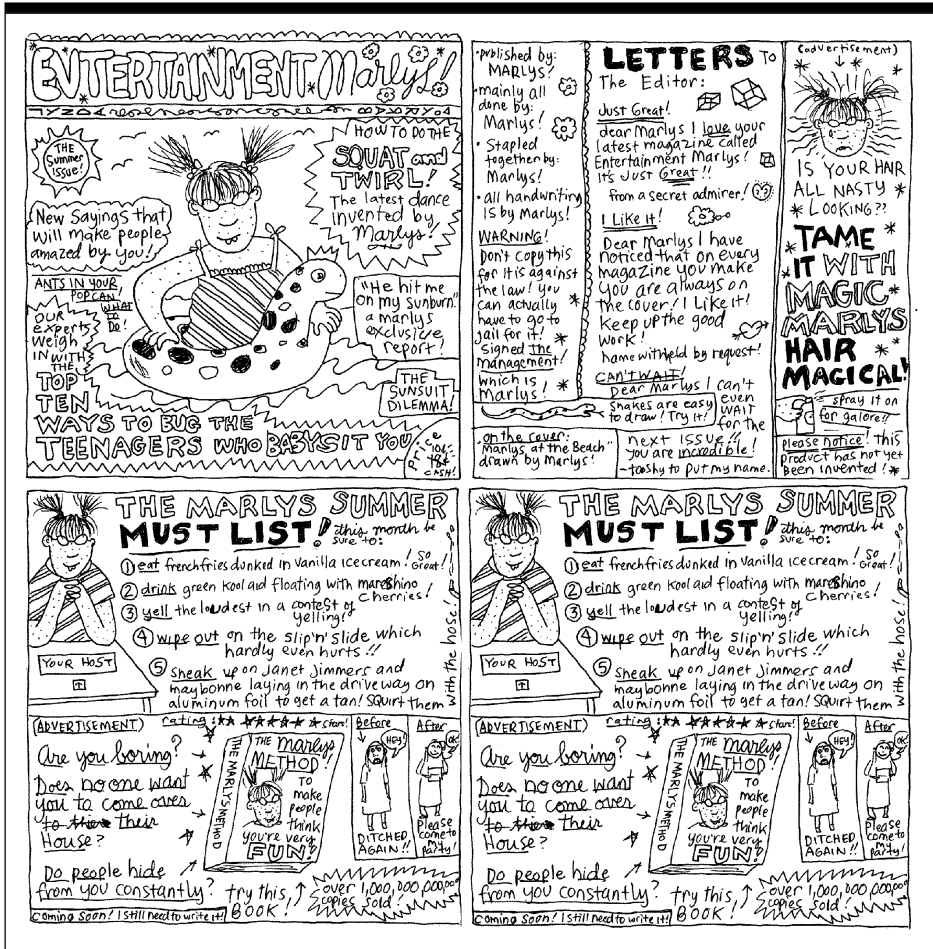 ENTERTAINMENT Marlys!
THE
Summer
ISSUE!
HOW TO DO THE
SQUAT and
TWIRL!
The latest dance
invented by
Marlys!
New Sayings that
will make people
amazed by you!
ANTS IN YOUR
POP CAN
WHAT
TO
DO!
"He hit me
on my sunburn"
a marlys
exclusive
report!
OUR
experts
weigh
IN WITH
THE
TOP
TEN
WAYS TO BUG THE
TEENAGERS WHO BABYSIT YOU
THE
SUNSUIT
DILEMMA!
Price
CASH!
•published by:
MARLYS!
•mainly all
done by:
Marlys!
• Stapled
together by:
Marlys!
•all handwriting
IS by Marlys!
WARNING!
Don't copy this
for it is against
the law! you
can actually
have to go to
jail for it!
signed the
management!
which is
Marlys!
on the cover:
"Marlys at the Beach"
drawn by Marlys!
LETTERS To
The Editor:
Just Great!
dear Marlys I love your
latest magazine called
Entertainment Marlys!
It's Just Great!!
from a secret admirer!
I Like It!
Dear Marlys I have
noticed that on every
magazine you make
you are always on
the cover! I Like it!
Keep up the good
work!
name withheld by request!
CAN'T WAIT!
Dear Marlys I can't
even
WAIT
for the
next issue!!
you are incredible!
-too shy to put my name.
Snakes are easy
to draw! Try it!
(advertisement)
IS YOUR HAIR
ALL NASTY
LOOKING??
TAME
IT WITH
MAGIC
MARLYS
HAIR
MAGICAL!
spray it on
for galore!!
please notice! this
product has not yet
been invented!
THE MARLYS SUMMER
MUST LIST! this month be
sure to:
① eat french fries dunked in Vanilla ice cream! So
Great!
② drink green kool aid floating with mareshino
cherries!
③ yell the loudest in a contest of
yelling!
④ wipe out on the slip'n'slide which
hardly even hurts!!
⑤ sneak up on Janet Jimmers and
maybonne laying in the driveway on
aluminum foil to get a tan! SQUIRT them
with the hose!
YOUR HOST
(ADVERTISEMENT)
Are you boring?
Does no one want
you to come over
to their
House?
Do people hide
from you constantly?
Coming soon! I still need to write it!
rating: ★★★★★★★ stars!
THE MARLYS METHOD
THE Marlys
METHOD!
TO
make
people
think
you're very
FUN!
try this
BOOK!
Before
HEY!
DITCHED
AGAIN!!
After
OK!
Please
come to
my
party!
over 1,000,000,000,000
copies sold!
THE MARLYS SUMMER
MUST LIST! this month be
sure to:
① eat french fries dunked in Vanilla ice cream! So
Great!
② drink green kool aid floating with mareshino
cherries!
③ yell the loudest in a contest of
yelling!
④ wipe out on the slip'n'slide which
hardly even hurts!!
⑤ sneak up on Janet Jimmers and
maybonne laying in the driveway on
aluminum foil to get a tan! SQUIRT them
with the hose!
YOUR HOST
(ADVERTISEMENT)
Are you boring?
Does no one want
you to come over
to their
House?
Do people hide
from you constantly?
Coming soon! I still need to write it!
rating: ★★★★★★★ stars!
THE MARLYS METHOD
THE Marlys
METHOD!
TO
make
people
think
you're very
FUN!
try this
BOOK!
Before
HEY!
DITCHED
AGAIN!!
After
OK!
Please
come to
my
party!
over 1,000,000,000,000
copies sold!